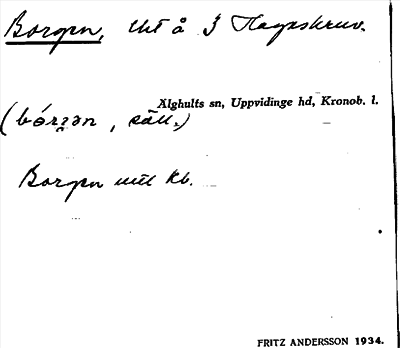 Borgen, tht å 3 Hagaskruv.
Älghults sn, Uppvidinge hd, Kronob. l.
(bórgən, säll.)
Borgen mtl Kb.
FRITZ ANDERSSON 1934.